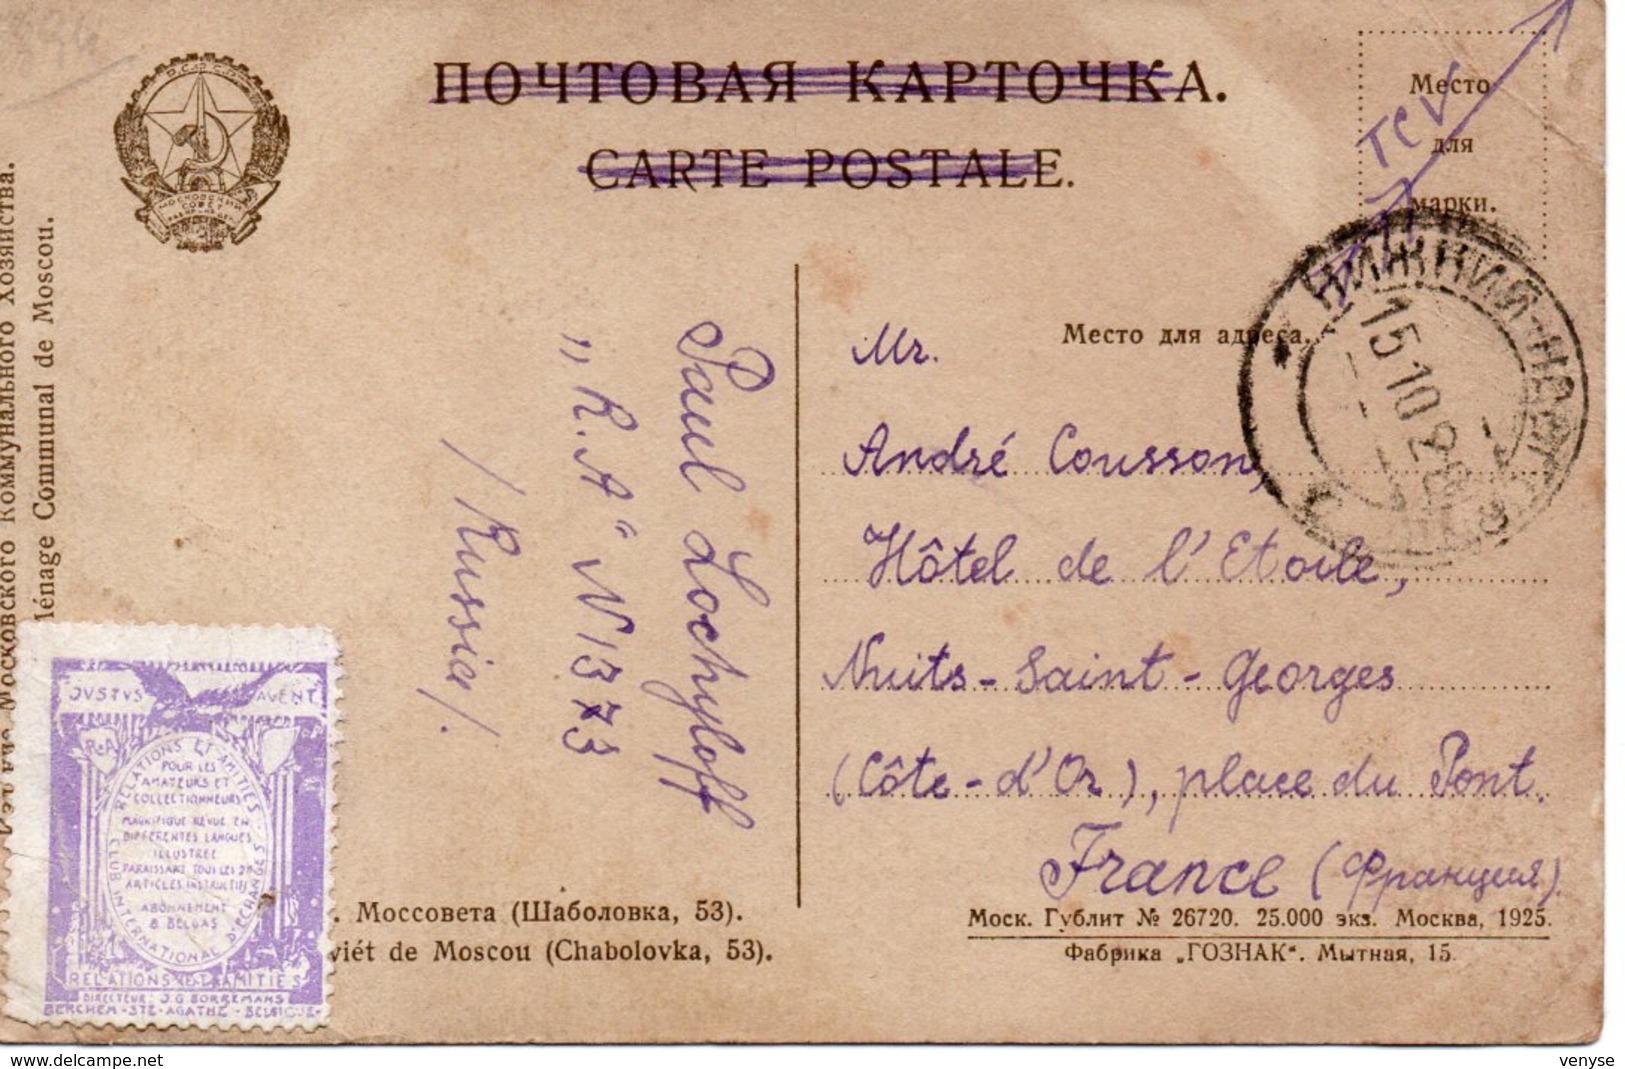 ПОЧТОВАЯ КАРТОЧКА.
CARTE POSTALE.
Место
для
марки.
TCV
НИЖНИЙ-НОВ
15 10 2
Место для адреса.
Mr.
André Cousson,
Hôtel de l'Etoile,
Nuits-Saint-Georges
(Côte-d'Or), place du Pont.
France (Франция).
Моск. Гублит № 26720. 25.000 экз. Москва, 1925.
Фабрика „ГОЗНАК“. Мытная, 15.
Paul Lochyloff
„R.A“ N 1373
/Russia/.
Московского Коммунального Хозяйства.
Ménage Communal de Moscou.
МОСКОВСКИЙ
СОВЕТ
. Моссовета (Шаболовка, 53).
viét de Moscou (Chabolovka, 53).
JVSTVS AVENT
R.A
RELATIONS ET AMITIÉS
CLUB INTERNATIONAL D'ECHANGES
POUR LES
AMATEURS ET
COLLECTIONNEURS
MAGNIFIQUE REVUE EN
DIFFÉRENTES LANGUES
ILLUSTRÉE
PARAISSANT TOUS LES 2M
ARTICLES INSTRUCTIFS
ABONNEMENT
8 BELGAS
RELATIONS & AMITIÉS
DIRECTEUR J.G BORREMANS
BERCHEM-STE-AGATHE-BELGIQUE-
delcampe.net
venyse